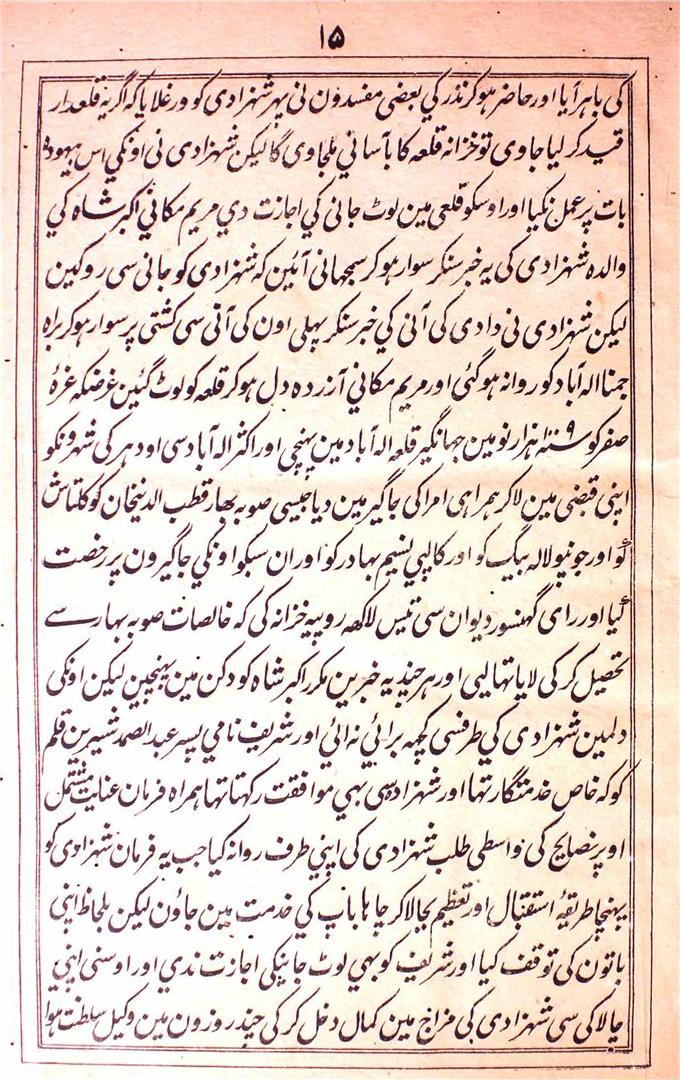 ۱۵
کی باہر آیا اور حاضر ہوکر نذر کي بعضی مفسدون نی پہر شہزادی کو ورغلایا کہ اگر یہ قلعدار
قید کر لیا جاوی تو خزانہ قلعہ کا بآسانی ملجاوی گا لیکن شہزادی نی اونکي اس بیہودہ
بات پر عمل نکیا اور اوسکو قلعی مین لوٹ جانی کي اجازت دي مریم مکاني اکبر شاہ کي
والدہ شہزادی کی یہ خبر سنکر سوار ہوکر سمجہانی آئین کہ شہزادی کو جانی سی روکین
لیکن شہزادی نی دادی کی آنی کي خبر سنکر پہلی اون کی آنی سی کشتی پر سوار ہوکر براہ
جمنا الہ آباد کو روانہ ہوگئی اور مریم مکاني آزردہ دل ہوکر قلعہ کو لوٹ گئین غرضکہ غرۂ
صفر کو ۱۰۰۹ ہزار نو مین جہانگیر قلعہ الہ آباد مین پہنچی اور اکثر الہ آباد سی اودہر کی شہرونکو
اپنی قبضی مین لاکر ہمراہی امرا کی جاگیر مین دیا جیسی صوبہ بہار قطب الدینخان کوکلتاش
کو اور جونپور لالہ بیگ کو اور کالپي نسیم بہادر کو اور ان سبکو اونکي جاگیرون پر رخصت
کیا اور رای گہنسور دیوان سی تیس لاکھہ روپیہ خزانہ کی کہ خالصات صوبہ بہار سے
تحصیل کر کی لایا تہا لیی اور ہر چند یہ خبرین مکرر اکبر شاہ کو دکن مین پہنچین لیکن اونکی
دلمین شہزادی کي طرفسی کچہہ برائي نہ آئي اور شریف نامي پسر عبد الصمد شیرین قلم
کو کہ خاص خدمتگار تہا اور شہزادی سی بہي موافقت رکہتا تہا ہمراہ فرمان عنایت مشتمل
اوپر نصایح کی واسطی طلب شہزادی کی اپني طرف روانہ کیا جب یہ فرمان شہزادی کو
پہنچا طریقۂ استقبال اور تعظیم بجا لاکر چاہا باپ کي خدمت مین جاؤن لیکن بلحاظ اپنی
باتون کی توقف کیا اور شریف کو بہي لوٹ جانیکی اجازت ندي اور اوسنی اپني
چالاکی سی شہزادی کی مزاج مین کمال دخل کر کی چند روزون مین وکیل سلطنت ہوا